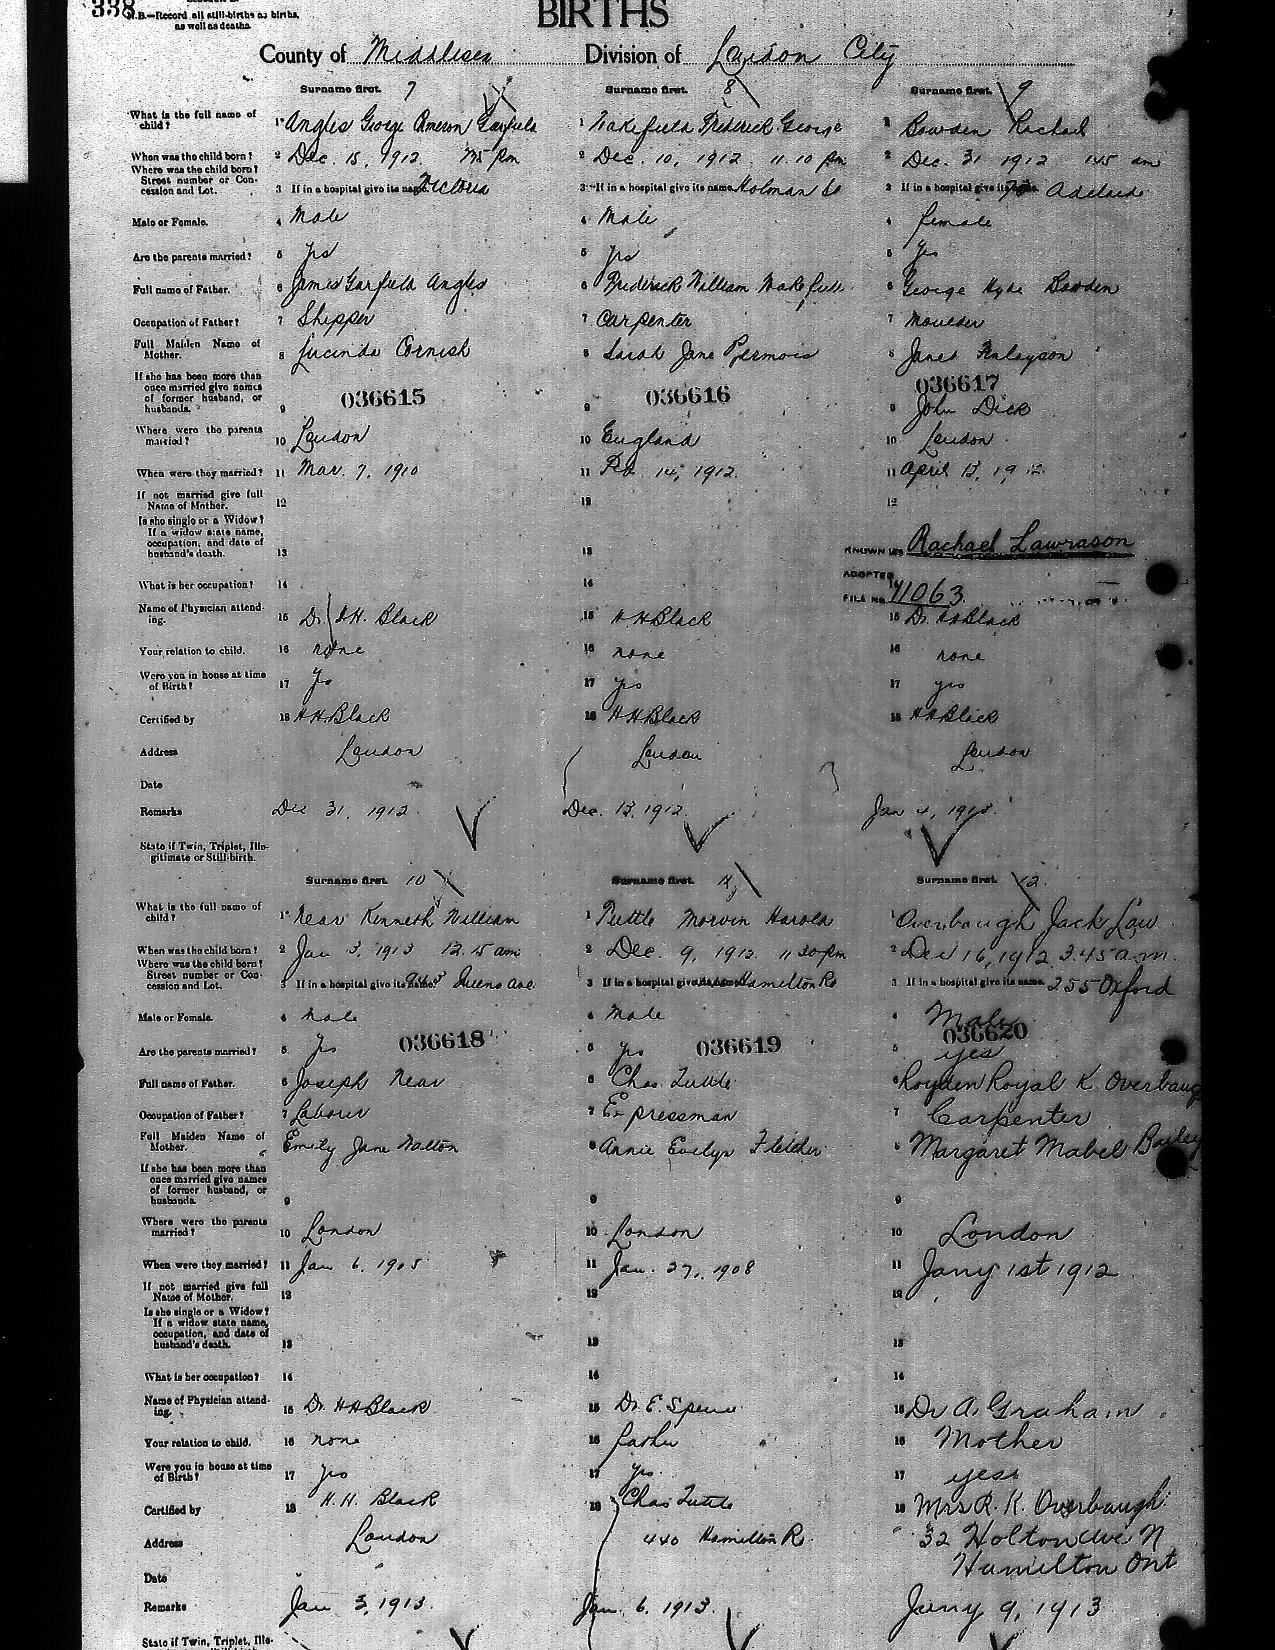 338
N.B.—Record all still-births as births,
as well as deaths.
BIRTHS
County of Middlesex Division of London City
Surname first. 7 Surname first. 8 Surname first. 9
What is the full name of child? 1 Angles George Cameron Garfield 1 Wakefield Frederick George 1 Bowden Rachael
When was the child born? 2 Dec. 15, 1912. 2 Dec. 10, 1912 11.10 pm 2 Dec. 31 1912 1 45 am
Where was the child born? Street number or Concession and Lot. 3 If in a hospital give its name Victoria 3 If in a hospital give its name Holman St 3 If in a hospital give its name. Adelaide
Male or Female. 4 Male 4 Male 4 female
Are the parents married? 5 Yes 5 yes 5 Yes
Full name of Father. 6 James Garfield Angles 6 Frederick William Wakefield 6 George Hyde Bowden
Occupation of Father? 7 Shipper 7 Carpenter 7 Moulder
Full Maiden Name of Mother. 8 Lucinda Cornish 8 Sarah Jane 8 Janet Finlayson
If she has been more than once married give names of former husband, or husbands. 9 036615 9 036616 9 036617 John Dick
Where were the parents married? 10 London 10 England 10 London
When were they married? 11 Mar. 7, 1910 11 14, 1912. 11 April 13, 1912
If not married give full Name of Mother. 12 12 12
Is she single or a Widow? If a widow state name, occupation, and date of husband's death. 13 13 KNOWN AS Rachael Lawrason
What is her occupation? 14 14 ADOPTED 14
FILE NO. 71063
Name of Physician attending. 15 Dr. H.H. Black 15 H H Black 15 Dr. H H Black
Your relation to child. 16 none 16 none 16 none
Were you in house at time of Birth? 17 Yes 17 yes 17 yes
Certified by 18 H H Black 18 H H Black 18 H H Black
Address London London London
Date
Remarks Dec 31, 1912. Dec. 13, 1912. Jan 4, 1913.
State if Twin, Triplet, Illegitimate or Still-birth.
Surname first. 10 Surname first. 11 Surname first. 12.
What is the full name of child? 1 Near Kenneth William 1 Tuttle Morvin Harold 1 Overbaugh Jack Law
When was the child born? 2 Jan 3, 1913 12.15 am 2 Dec. 9, 1912. 11 30 pm 2 Dec 16, 1912 3.45 a.m.
Where was the child born? Street number or Concession and Lot. 3 If in a hospital give its name. 943 Queens Ave. 3 If in a hospital give its name Hamilton Rd 3 If in a hospital give its name. 255 Oxford
Male or Female. 4 male 4 Male 4 Male
Are the parents married? 5 Yes 036618 5 yes 036619 5 yes 036620
Full name of Father. 6 Joseph Near 6 Chas. Tuttle 6 Royden Royal K. Overbaug
Occupation of Father? 7 Labourer 7 Expressman 7 Carpenter
Full Maiden Name of Mother. Emily Jane Walton 8 Annie Evelyn Fletcher 8 Margaret Mabel Bailey
If she has been more than once married give names of former husband, or husbands. 9 9 9
Where were the parents married? 10 London 10 London 10 London
When were they married? 11 Jan 6, 1905 11 Jan. 27, 1908 11 Jany 1st 1912
If not married give full Name of Mother. 12 12 12
Is she single or a Widow? If a widow state name, occupation, and date of husband's death. 13 13 13
What is her occupation? 14 14 14
Name of Physician attending. 15 Dr. H H Black 15 Dr. E. Spence 15 Dr A. Graham
Your relation to child. 16 none 16 father 16 Mother
Were you in house at time of Birth? 17 yes 17 yes 17 yes
Certified by 18 H. H. Black 18 Chas Tuttle 18 Mrs R. K. Overbaugh
Address London 440 Hamilton R 32 Holton Ave N
Hamilton Ont
Date
Remarks Jan 3, 1913. Jan. 6, 1913. Jany 9, 1913
State if Twin, Triplet, Ille-